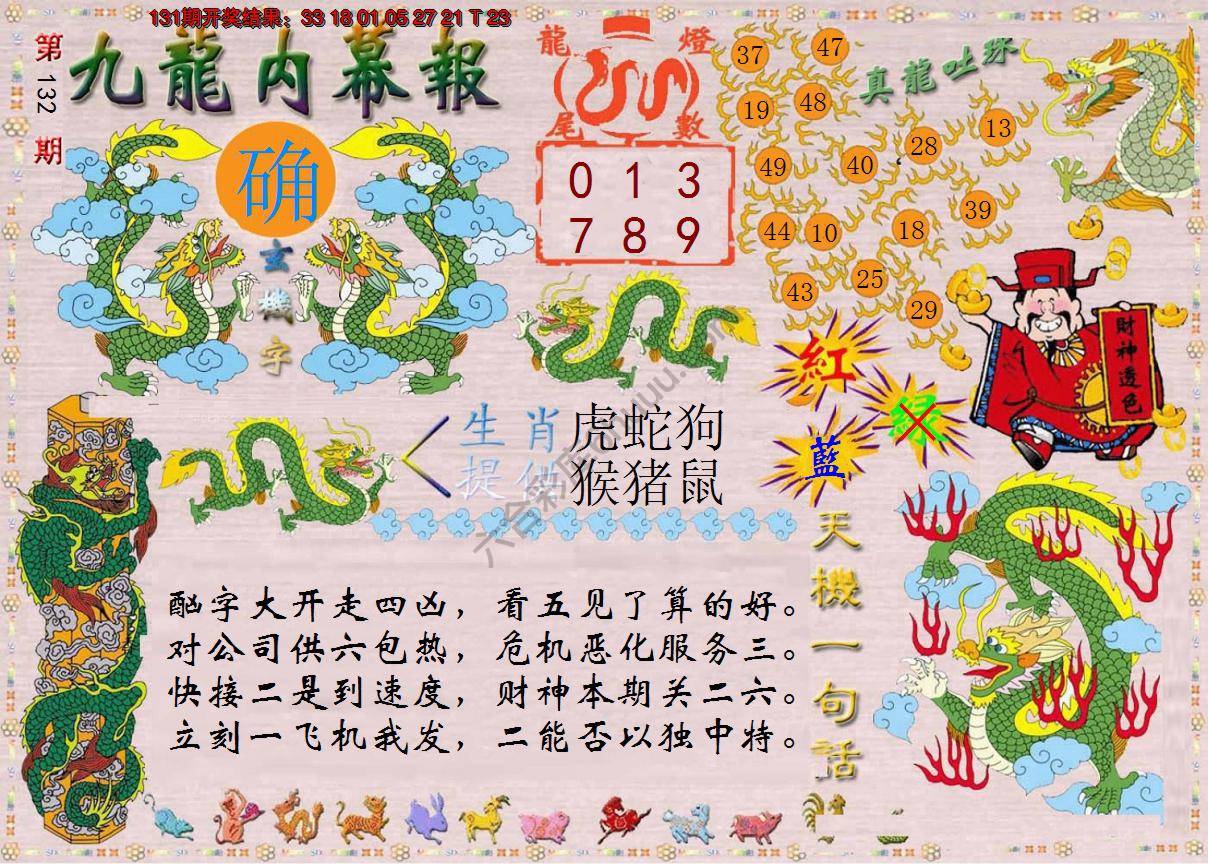 131期开奖结果：33 18 01 05 27 21 T 23
第132期
九龍内幕報
确
玄機字
龍燈
尾數
0 1 3
7 8 9
真龍吐珠
37 47
19 48
49 40 28 13
44 10 18 39
43 25 29
財神透色
紅
綠
藍
生肖
提供
虎蛇狗
猴猪鼠
天機一句話
酗字大开走四凶，看五见了算的好。
对公司供六包热，危机恶化服务三。
快接二是到速度，财神本期关二六。
立刻一飞机我发，二能否以独中特。